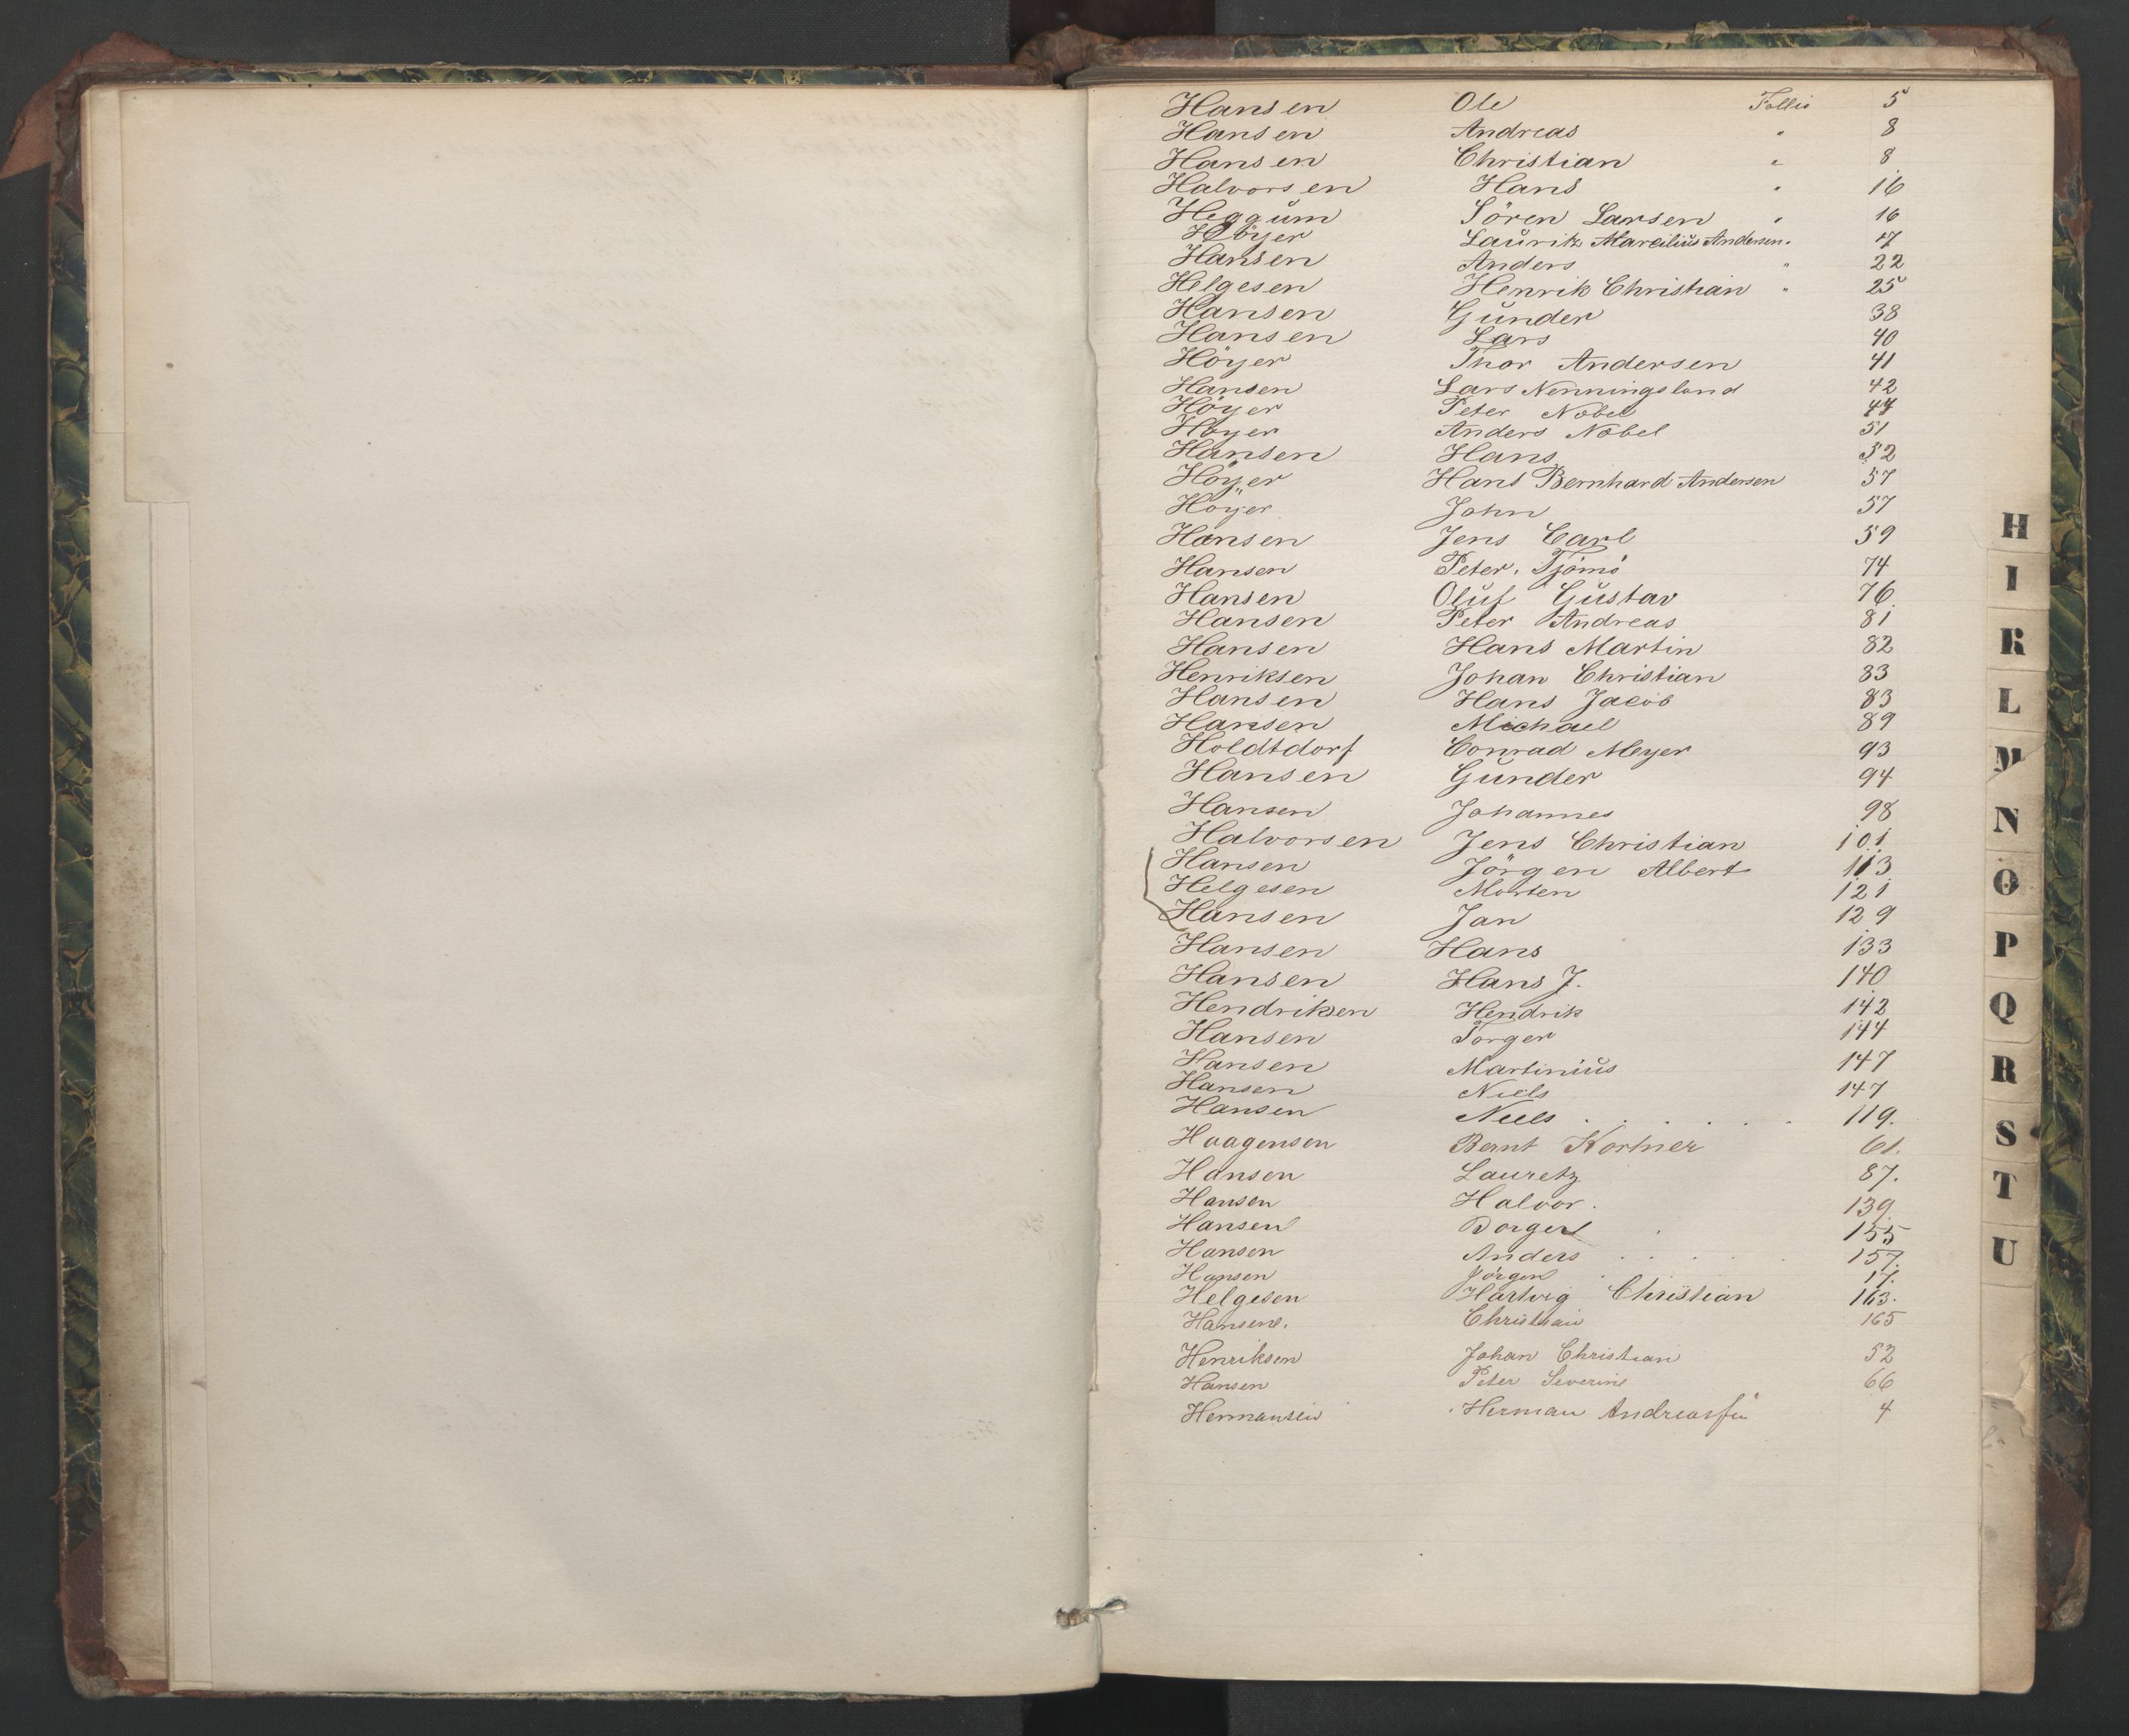 Hansen Ole Follio 5
Hansen Andreas " 8
Hansen Christian " 8
Halvorsen Hans " 16
Heggŭm Sören Larsen " 16
Höyer Laŭritz Marcilius Andersen " 17
Hansen Anders " 22
Helgesen Henrik Christian " 25
Hansen Gŭnder 38
Hansen Lars 40
Höyer Thor Andersen 41
Hansen Lars Nenningsland 42
Höyer Peter Nobel 44
Höyer Anders Nobel 51
Hansen Hans 52
Höyer Hans Bernhard Andersen 57
Höyer John 57
Hansen Jens Carl 59
Hansen Peter, Tjömö 74
Hansen Olŭf Gŭstav 76
Hansen Peter Andreas 81
Hansen Hans Martin 82
Henriksen Johan Christian 83
Hansen Hans Jacob 83
Hansen Michael 89
Holdtdorf Conrad Meyer 93
Hansen Gŭnder 94
Hansen Johannes 98
Halvorsen Jens Christian 101
Hansen Jörgen Albert 113
Helgesen Morten 121
Hansen Jan 129
Hansen Hans 133
Hansen Hans J. 140
Hendriksen Hendrik 142
Hansen Torger 144
Hansen Martiniŭs 147
Hansen Niels 147
Hansen Niels . . . . . . 119.
Haagensen Bernt Kortner 61.
Hansen Lauretz 87.
Hansen Halvor. 139.
Hansen Borger . 155
Hansen Anders . . . . 157.
Hansen Jörgen . 17.
Helgesen Hartvig Christian 163.
Hansen. Christian 165
Henriksen Johan Christian 52
Hansen Peter Severin 66
Hermansen Herman Andreas 4
H
I
K
L
M
N
O
P
Q
R
S
T
U